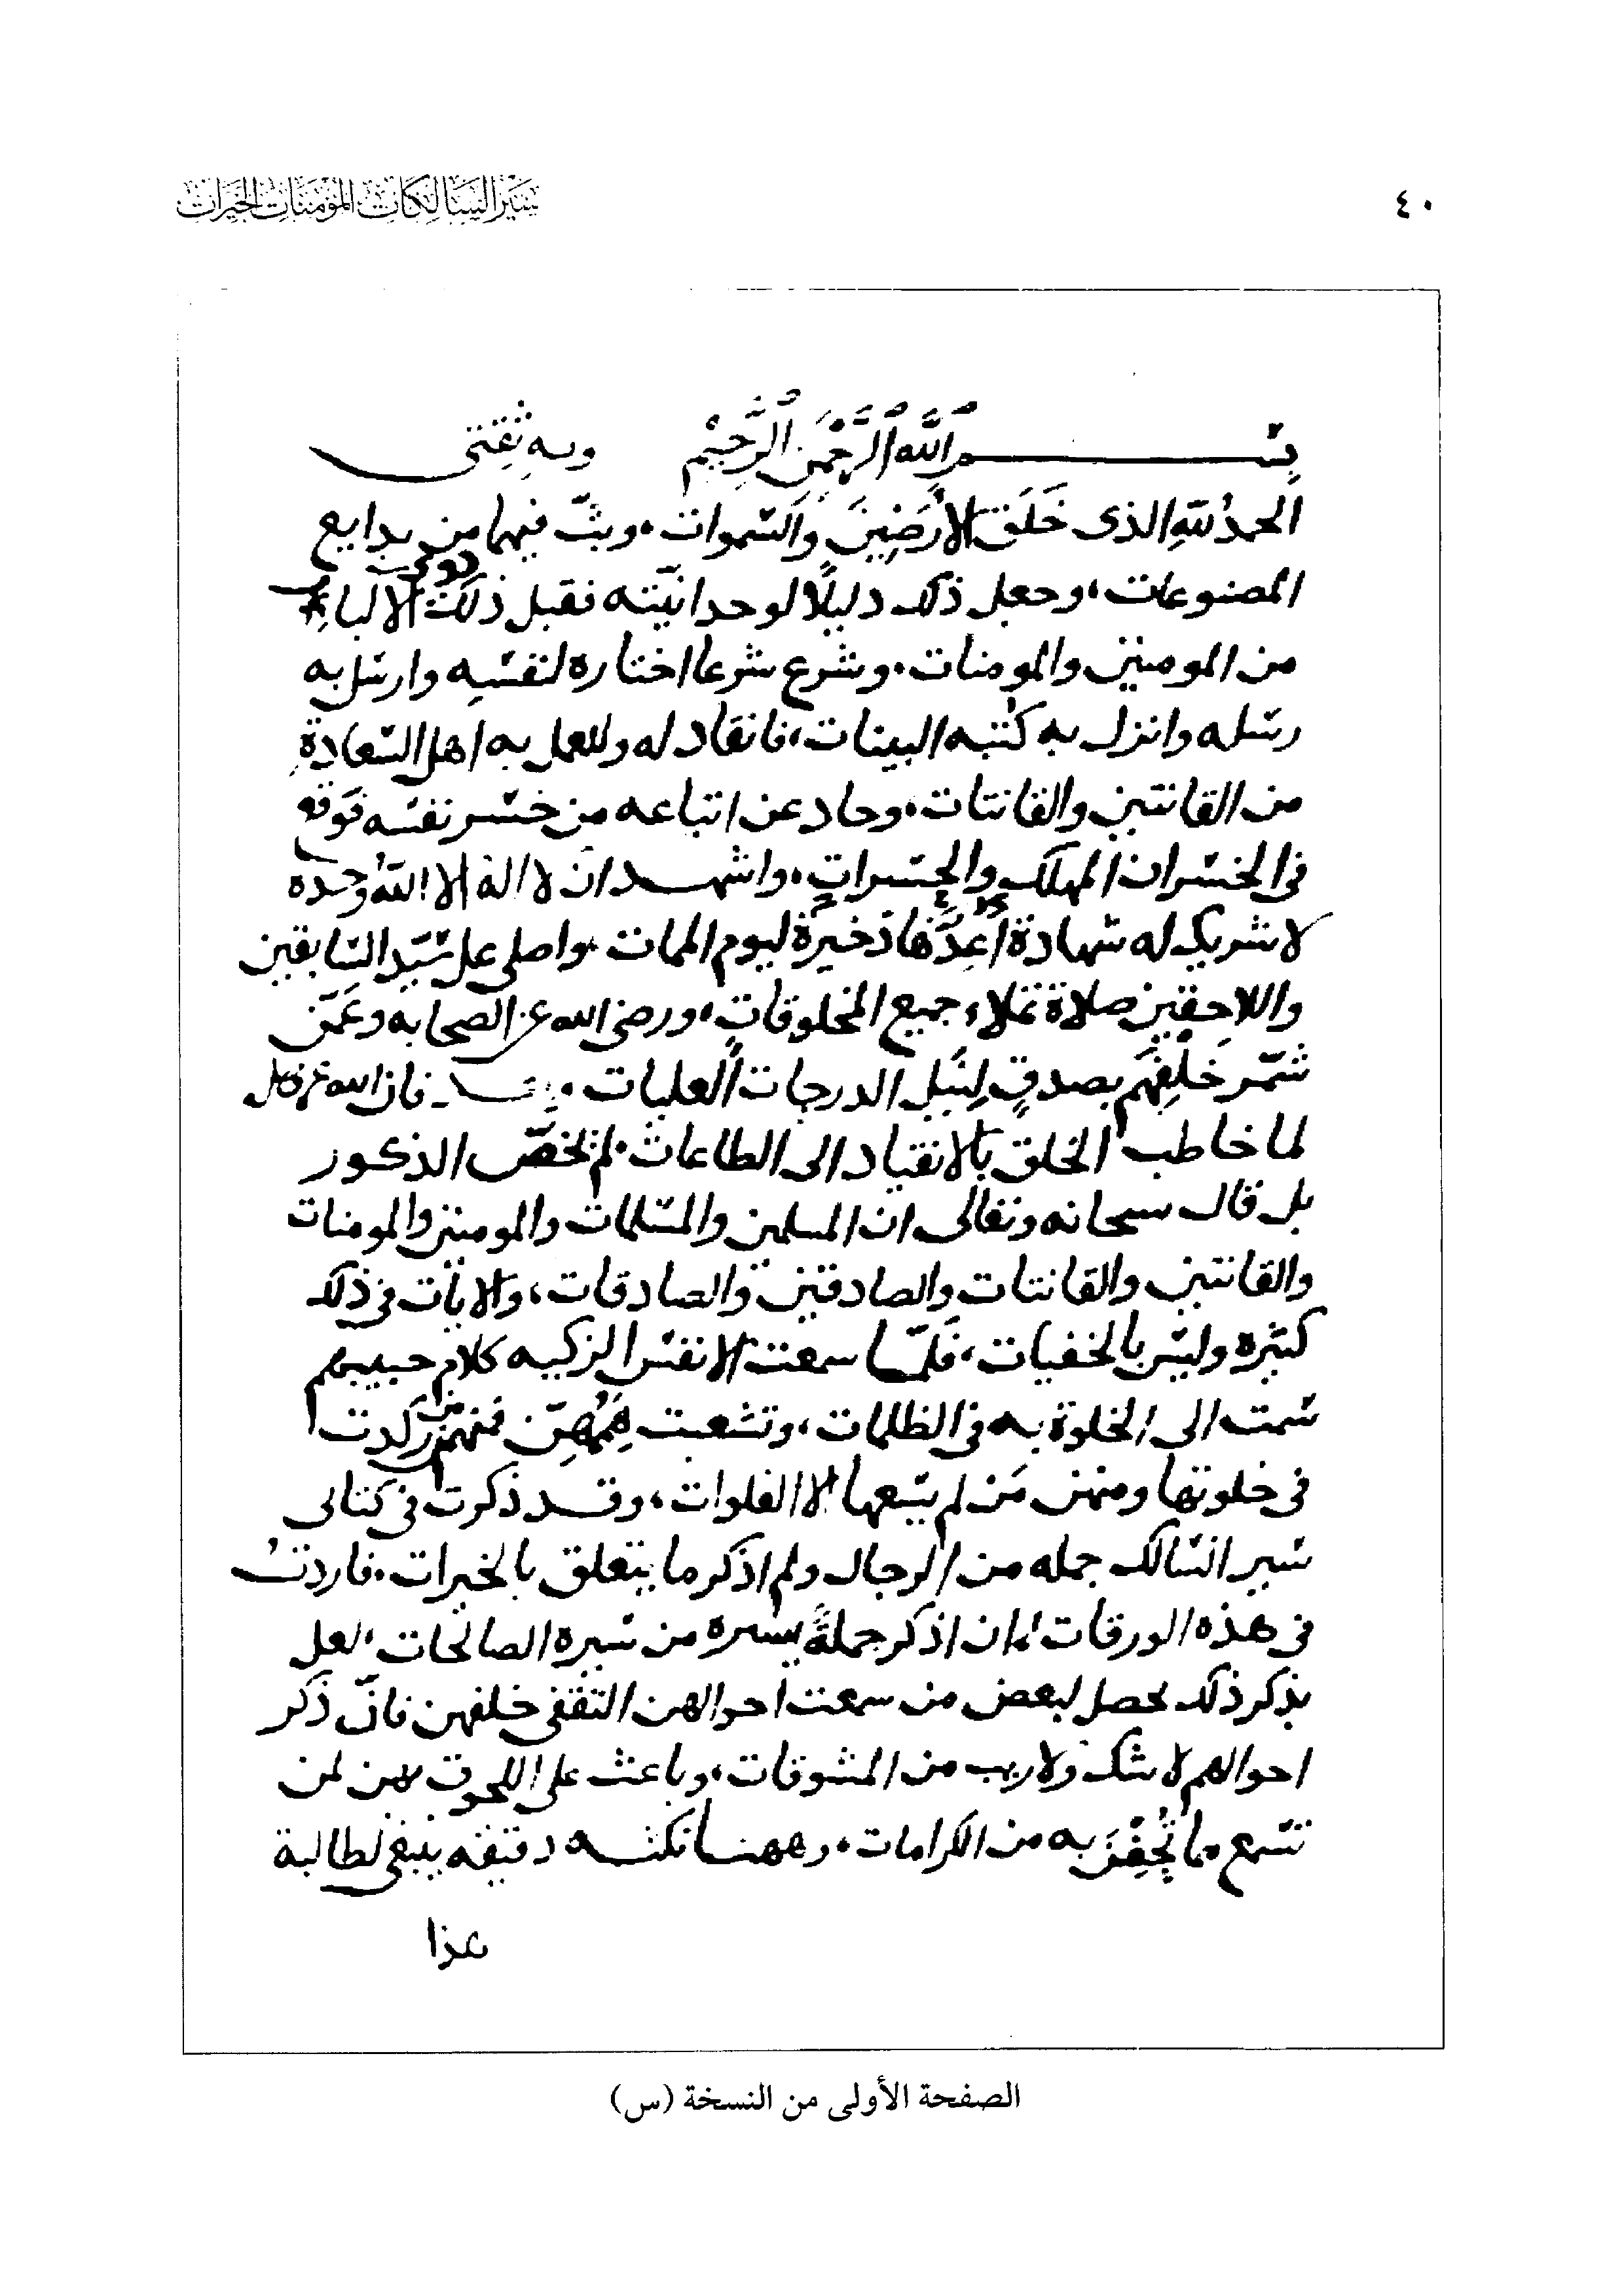 ٤٠
سير السالكات المؤمنات الخيرات
بسم الله الرحمن الرحيم وبه ثقتي
الحمد لله الذى خَلَق الارَضِينَ والسّموات، وبثّ فيهما من بدايع
المصنوعات، وجعل ذلك دليلًا لوحدانيّته فقبل ذلك ذوى الالباب
من المومنين والمومنات، وشرع شرعا اختاره لنفسه وارسل به
رسله وانزل به كتبه البينات، فانقاد له وللعمل به اهل السّعادة
من القانتين والقانتات، وحاد عن اتباعه من خسر نفسه فوقع
فى الخسران المهلك والحسرات، واشهد ان لا اله الا الله وحده
لا شريك له شهادة اعدّها ذخيرة ليوم الممات واصلى على سيّد السّابقين
واللاحقين صلاة تملاء جميع المخلوقات، ورضى الله عن الصحابه وعَمّن
شمّر خلفهم بصدقٍ لِنَيل الدرجات العليات، وبعد فان الله عز وجل
لما خاطب الخلق بالانقياد الى الطاعات، لم يخصّ الذكور
بل قال سبحانه وتعالى ان المسلمين والمسلمات والمومنين والمومنات
والقانتين والقانتات والصادقين والصادقات، والايات فى ذلك
كثيره وليس بالخفيات، فلمّا سمعت الانفس الزكيه كلام حبيبهم
سمت الى الخلوة به فى الظلمات، وتشعبت هِمَمُهنّ فمنهم من ركدت
فى خلوتها ومنهن مَن لم يسعها الا الفلوات، وقد ذكرت فى كتابى
سير السّالك جمله من الرجال ولم اذكر ما يتعلق بالخيرات، فاردت
فى هذه الورقات ان اذكر جملةً يسيره من سيرة الصالحات، لعل
بذكر ذلك يحصل لبعض من سمعت احوالهن التقفى خلفهن فانّ ذكر
احوالهم لا شك ولا ريب من المشوقات، وباعث على اللحوق بهن لمن
تسمع ما تُحِفْنَ به من الكرامات، وههنا نكته دقيقه ينبغى لطالبة
هذا
الصفحة الأولى من النسخة (س)